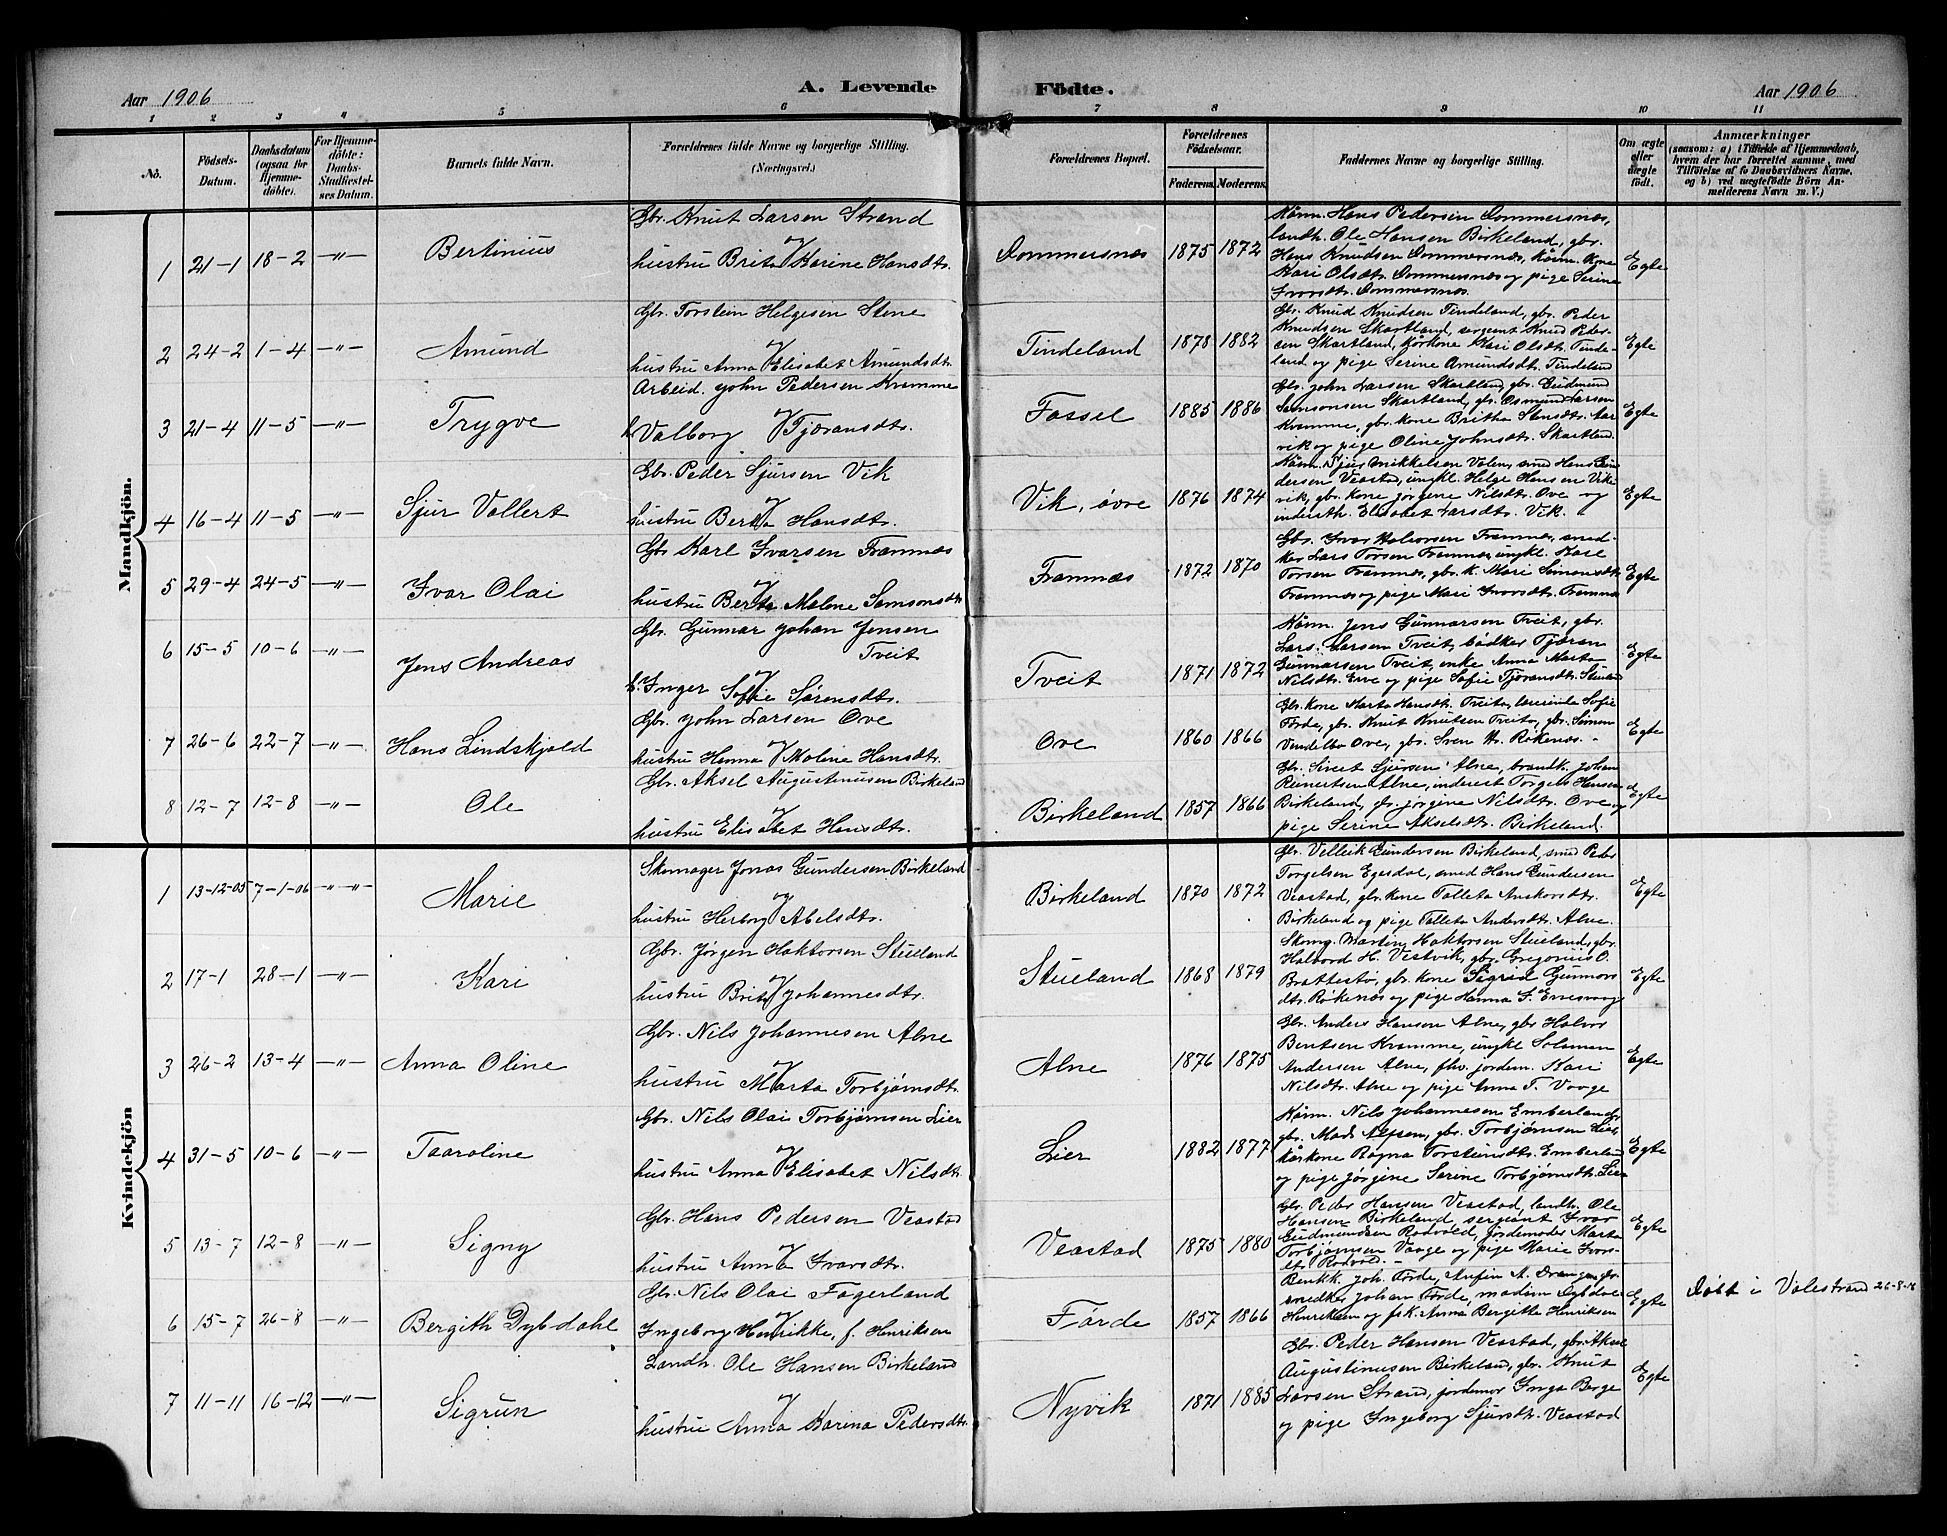 Aar 1906
A. Levende
Födte.
Aar 1906
1 2 3 4 5 6 7 8 9 10 11
No.
Födsels-
Datum.
Daabsdatum
(ogsaa for
Hjemme-
döbte).
For Hjemme-
döbte:
Daabs-
Stadfæstel-
ses Datum.
Barnets fulde Navn.
Forældrenes fulde Navne og borgerlige Stilling.
(Næringsvei.)
Forældrenes Bopæl.
Forældrenes
Födselsaar.
Faderens. Moderens.
Faddernes Navne og borgerlige Stilling.
Om ægte
eller
uægte
födt.
Anmærkninger
(saasom: a) i Tilfælde af Hjemmedaab,
hvem der har forrettet samme, med
Tilföielse af to Daabsvidners Navne,
og b) ved uægtefödte Börn An-
melderens Navn m. V.)
Mandkjön.
1 21-1 18-2 -"- Bertinius
Gbr. Knut Larsen Strand
og
hustru Brita Karine Hansdtr.
Dommersnæs 1875 1872
Kårm. Hans Pedersen Dommersnæs,
landh. Ole Hansen Birkeland, gbr.
Hans Knudsen Dommersnæs, kårm. kone
Kari Olsdtr. Dommersnæs og pige Serine
Ivarsdtr. Dommersnæs.
Egte
2 24-2 1-4 -"- Amund
Gbr. Torstein Helgesen Stene
og
hustru Anna Elisabet Amundsdtr.
Tindeland 1878 1882
Gbr. Knud Knudsen Tindeland, gbr. Peder
Knudsen Skartland, sergent Knud Peder-
sen Skartland, kårkone Kari Olsdtr. Tinde-
land og pige Serine Amundsdtr. Tindeland
Egte
3 21-4 11-5 -"- Trygve
Arbeid. John Pedersen Kramme
og
h. Valborg Tjæransdtr.
Fossel 1885 1886
Gbr. John Larsen Skartland, gbr. Gudmund
Samsonsen Skartland, gbr. Osmund Larsen
Kramme, gbr. kone Britha Stensdtr. Aar-
vik og pige Oline Johnsdtr. Skartland.
Egte
4 16-4 11-5 -"- Sjur Vallert
Gbr. Peder Sjursen Vik
og
hustru Berta Hansdtr.
Vik, øvre 1876 1874
Kårm. Sjur Mikkelsen Valen, smed Hans Gun-
dersen Veastad, ungkl. Helge Hansen Vike-
vik, gbr. kone Jørgine Nilsdtr. Ove og
inderstk. Elisabet Larsdtr. Vik.
Egte
5 29-4 24-5 -"- Ivar Olai
Gbr. Karl Ivarsen Framnæs
og
hustru Berta Malene Samsonsdtr.
Framnæs 1872 1870
Gbr. Ivar Halvorsen Framnæs, smed-
ker Lars Torsen Framnæs, ungkl. Karl
Torsen Framnæs, gbr. k. Mari Simonsdtr.
Framnæs og pige Mari Ivarsdtr. Framnæs
Egte
6 15-5 10-6 -"- Jens Andreas
Gbr. Gunnar Johan Jensen
Tveit
og
h. Inger Sofie Sørensdtr.
Tveit 1871 1872
Kårm. Jens Gunnarsen Tveit, gbr.
Lars Larsen Tveit, bødker Tjæran
Gunnarsen Tveit, enke Anna Marta
Nilsdtr. Erve og pige Sofie Tjæransdtr. Stueland
Egte
7 26-6 22-7 -"- Hans Lindskjold
Gbr. John Larsen Ove
og
hustru Hanna Malene Hansdtr.
Ove 1860 1866
Gbr. kone Marta Hansdtr. Tveito, lærerinde Sofie
Førde, gbr. Knut Knutsen Tveito, gbr. Simon
Vendelbo Ove, gbr. Sven Hr. Røkenæs.
Egte
8 12-7 12-8 -"- Ole
Gbr. Aksel Augustinusen Birkeland
og
hustru Elisabet Hansdtr.
Birkeland 1857 1866
Gbr. Sivert Sjursen Alne, brandk. Johan
Reinertsen Alne, inderst Torgels Hansen
Birkeland, gbr. Jørgine Nilsdtr. Ove og
pige Serine Akselsdtr. Birkeland.
Egte
Kvindekjön
1 13-12-05 7-1-06 -"-"- Marie
Skomager Jonas Gundersen Birkeland
og
hustru Herborg Abelsdtr.
Birkeland 1870 1872
Gbr. Velleik Gundersen Birkeland, smed Peder
Torgelsen Egesdal, smed Hans Gundersen
Veastad, gbr. kone Talleta Anskorsdtr.
Birkeland og pige Talleta Andersdtr. Alne.
Egte
2 17-1 28-1 -"- Kari
Gbr. Jørgen Haktorsen Stueland
og
hustru Brita Johannesdtr.
Stueland 1868 1879
Skomg. Martin Haktorsen Stueland, gbr.
Halvord H. Vestvik, gbr. Gregorius O.
Brattestø, gbr. kone Sigrid Gunnars-
dtr. Røkenæs og pige Hanna S. Ernesvaag
Egte
3 26-2 13-4 -"- Anna Oline
Gbr. Nils Johannesen Alne
og
hustru Marta Torbjørnsdtr.
Alne 1876 1875
Gbr. Anders Hansen Alne, gbr. Halvor
Bentsen Kramme, ungkl. Salamon
Andersen Alne, fhv. jordem. Kari
Nilsdtr. Alne og pige Anna T. Vaage
Egte
4 31-5 10-6 -"- Taaroline
Gbr. Nils Olai Torbjørnsen Lier
og
hustru Anna Elisabet Nilsdtr.
Lier 1882 1877
Kårm. Nils Johannesen Emberland,
gbr. Mads Alfsen, gbr. Torbjørnsen Lier,
kårkone Ragna Torsteinsdtr. Emberland
og pige Jørgine Serine Torbjørnsdtr. Lier
Egte
5 13-7 12-8 -"- Signy
Gbr. Hans Pedersen Veastad
og
hustru Anna Ivarsdtr.
Veastad 1875 1880
Gbr. Peder Hansen Veastad, landh. Ole
Hansen Birkeland, sergeant Ivar
Gudmundsen Rodvold, jordemoder Marta
Torbjørnsen Vaage og pige Marie Ivars-
dtr. Rodvold.
Egte
6 15-7 26-8 -"- Bergith Dybdahl
Gbr. Nils Olai Fagerland
og
Ingeborg Henrikke, f. Henriksen
Førde 1857 1866
Bankk. Joh. Førde, Anfin A. Drange, gbr.
smedker Johan Førde, madam Dybdal
Henriksen og frk. Anna Bergitte Henriksen
Egte
Døbt i Valestrand 26-8-06
7 11-11 16-12 -"- Sigrun
Landh. Ole Hansen Birkeland
og
hustru Anna Karina Pedersdtr.
Nyvik 1871 1885
Gbr. Peder Hansen Veastad, gbr. Aksel
Augustinusen Birkeland, gbr. Knut
Larsen Strand, jordemor Inga Berge
og pige Ingeborg Sjursdtr. Veastad
Egte